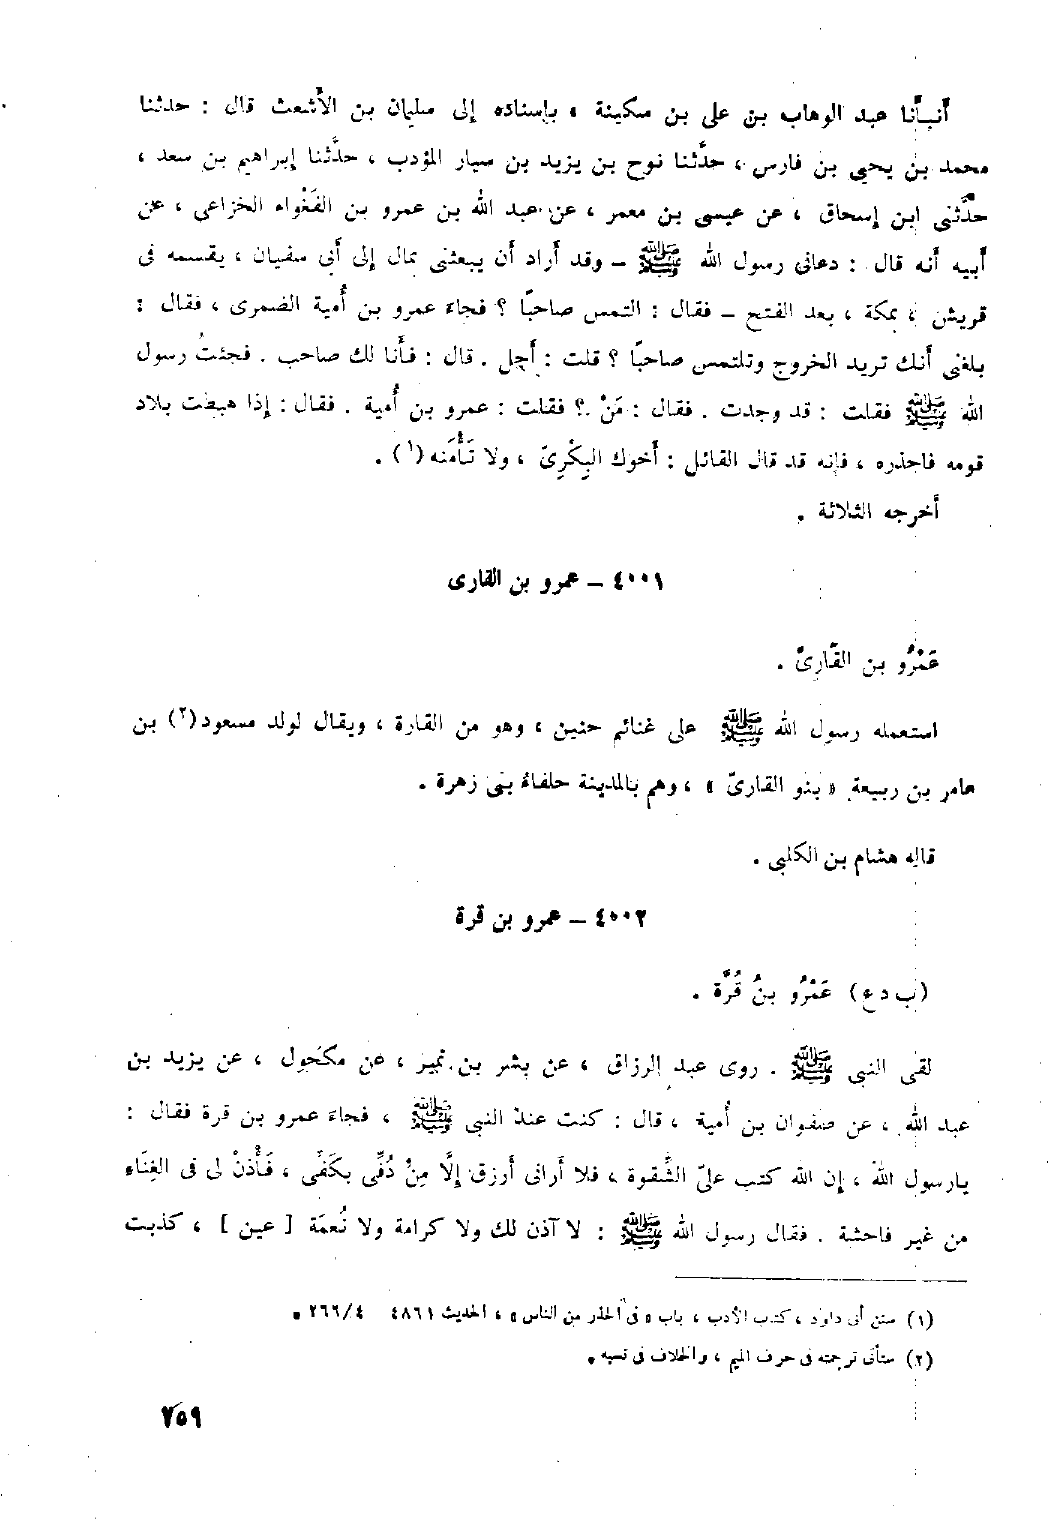 أنبأنا عبد الوهاب بن على بن سكينة ، بإسناده إلى سليمان بن الأشعث قال : حدثنا
محمد بن يحيى بن فارس ، حدَّثنا نوح بن يزيد بن سيار المؤدب ، حدَّثنا إبراهيم بن سعد ،
حدَّثنى ابن إسحاق ، عن عيسى بن معمر ، عن عبد الله بن عمرو بن الفَغْواء الخزاعى ، عن
أبيه أنه قال : دعانى رسول الله ﷺ – وقد أراد أن يبعثنى بمال إلى أبى سفيان ، يقسمه فى
قريش ، بمكة ، بعد الفتح – فقال : التمس صاحبًا ؟ فجاءَ عمرو بن أُمية الضمرى ، فقال :
بلغنى أنك تريد الخروج وتلتمس صاحبًا ؟ قلت : أجل . قال : فأَنا لك صاحب . فجئتُ رسول
الله ﷺ فقلت : قد وجدت . فقال : مَنْ ؟ فقلت : عمرو بن أُمية . فقال : إذا هبطت بلاد
قومه فاحذره ، فإنه قد قال القائل : أخوك البِكْرِىّ ، ولا تَأْمَنه (١) .
أخرجه الثلاثة .
٤٠٠١ – عمرو بن القارى
عَمْرُو بن القَارِىّ .
استعمله رسول الله ﷺ على غنائم حنين ، وهو من القارة ، ويقال لولد مسعود(٢) بن
عامر بن ربيعة « بنو القارىّ » ، وهم بالمدينة حلفاءُ بنى زهرة .
قاله هشام بن الكلبى .
٤٠٠٢ – عمرو بن قرة
(ب د ع) عَمْرُو بنُ قُرَّة .
لقى النبى ﷺ . روى عبد الرزاق ، عن بشر بن نمير ، عن مكحول ، عن يزيد بن
عبد الله ، عن صفوان بن أُمية ، قال : كنت عند النبى ﷺ ، فجاءَ عمرو بن قرة فقال :
يارسول الله ، إن الله كتب علىّ الشَّقوة ، فلا أرانى أرزق إلَّا مِنْ دُفِّى بكَفِّى ، فَأْذنْ لى فى الغِنَاء
من غير فاحشة . فقال رسول الله ﷺ : لا آذن لك ولا كرامة ولا نُعمَة [ عين ] ، كذبت
(١) سنن أبى داود ، كتاب الأدب ، باب « فى الحذر من الناس » ، الحديث ٤٨٦١ ٤/٢٦٦ .
(٢) ستأتى ترجمته فى حرف الميم ، والخلاف فى نسبه .
٧٥٩